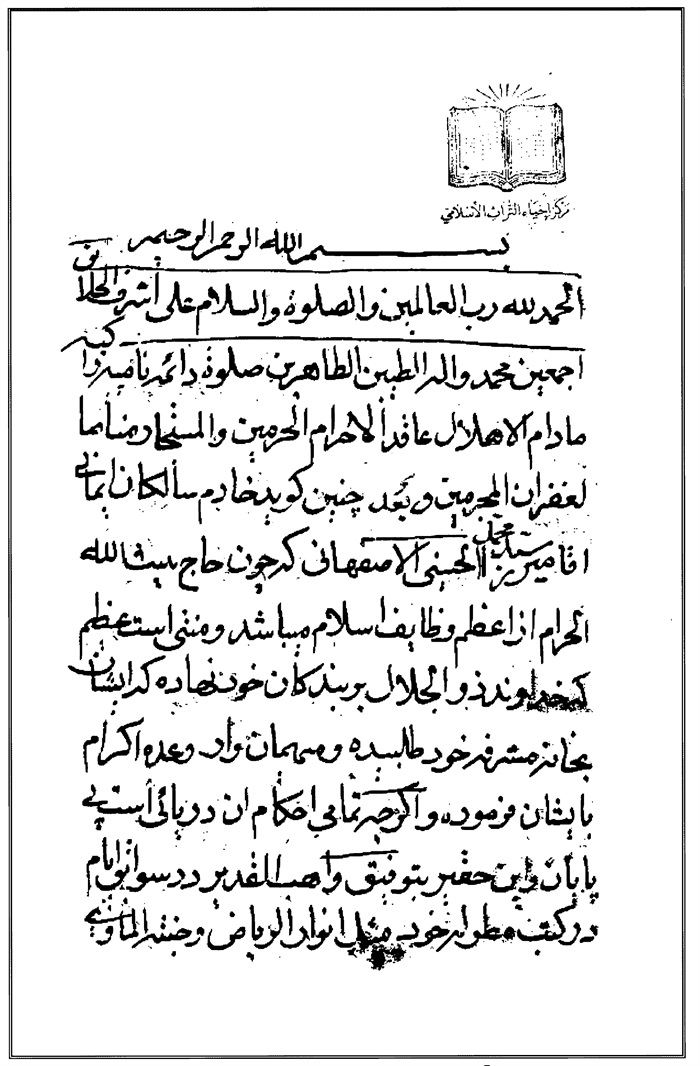 مركز إحياء التراث الإسلامي
بسم الله الرحمن الرحيم
الحمد لله رب العالمين والصلوة والسلام على أشرف الخلائق
اجمعين محمد واله الطيبين الطاهرين صلوة دائمة ناميه زاكيه
مادام الاهلال عاقداً لاحرام الحرمين والمستجار
لغفران المجرمين وبعد چنين كويد خادم سالكان
اقا ميرزا سيد محمد الحسيني الاصفهاني كه چون حاج بيت الله
الحرام از اعظم وظايف اسلام ميباشد و منتى است عظيم
كه خداوند ذو الجلال بر بندكان خود نهاده كه ايشان
بخانه مشرفه خود طلبيده و مهمان وار وعده اكرام
بايشان فرموده و اكرچه تمامي احكام ان دريائى است بي
پايان واين حقير بتوفيق واهب القدير در سوابق ايام
در كتب مطوله خود مثل انوار الرياض و جنته الماوى